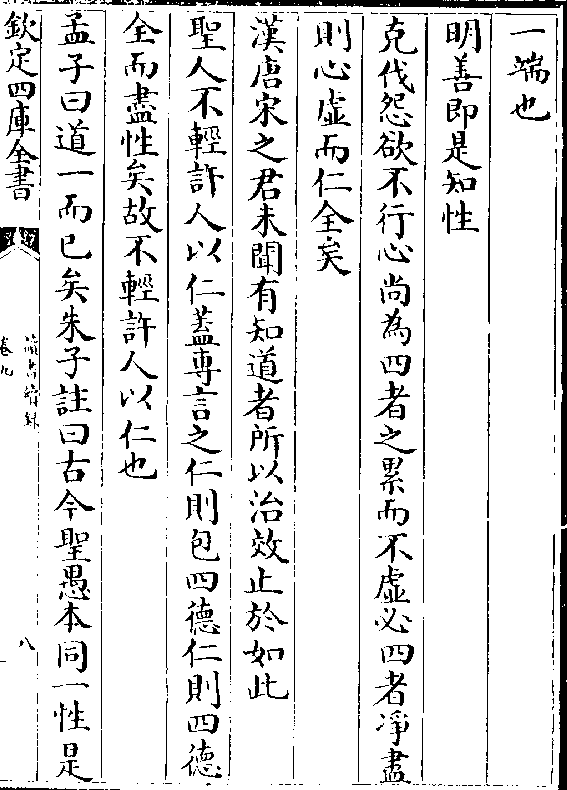 一端也
明善即是知性
克伐怨欲不行心尚為四者之累而不虚必四者淨盡
則心虚而仁全矣
漢唐宋之君未聞有知道者所以治效止於如此
聖人不輕許人以仁蓋專言之仁則包四德仁則四德
全而盡性矣故不輕許人以仁也
孟子曰道一而已矣朱子註曰古今聖愚本同一性是
欽定四庫全書
讀書續録
卷九
八